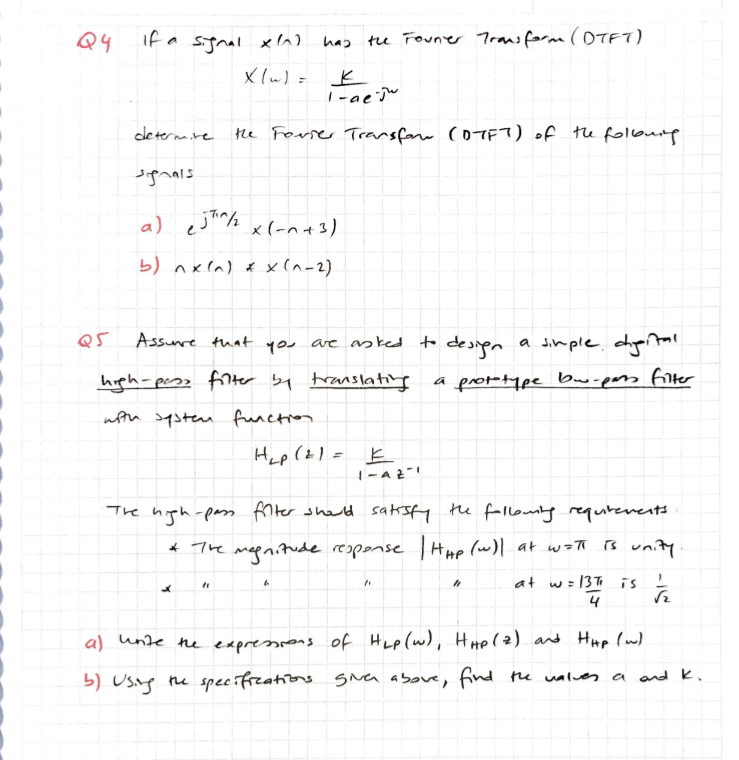 Q4 If a signal x(n) has the Fourier Transform (DTFT)
X(ω) = K / (1 - ae^-jω)
determine the Fourier Transform (DTFT) of the following
signals
a) e^jπn/2 x(-n+3)
b) n x(n) * x(n-2)
Q5 Assume that you are asked to design a simple digital
high-pass filter by translating a prototype low-pass filter
with system function
H_LP(z) = K / (1 - a z^-1)
The high-pass filter should satisfy the following requirements.
* The magnitude response |H_HP(ω)| at ω=π is unity.
* " " " " at ω = 13π/4 is 1/√2
a) Write the expressions of H_LP(ω), H_HP(z) and H_HP(ω)
b) Using the specifications given above, find the values a and K.